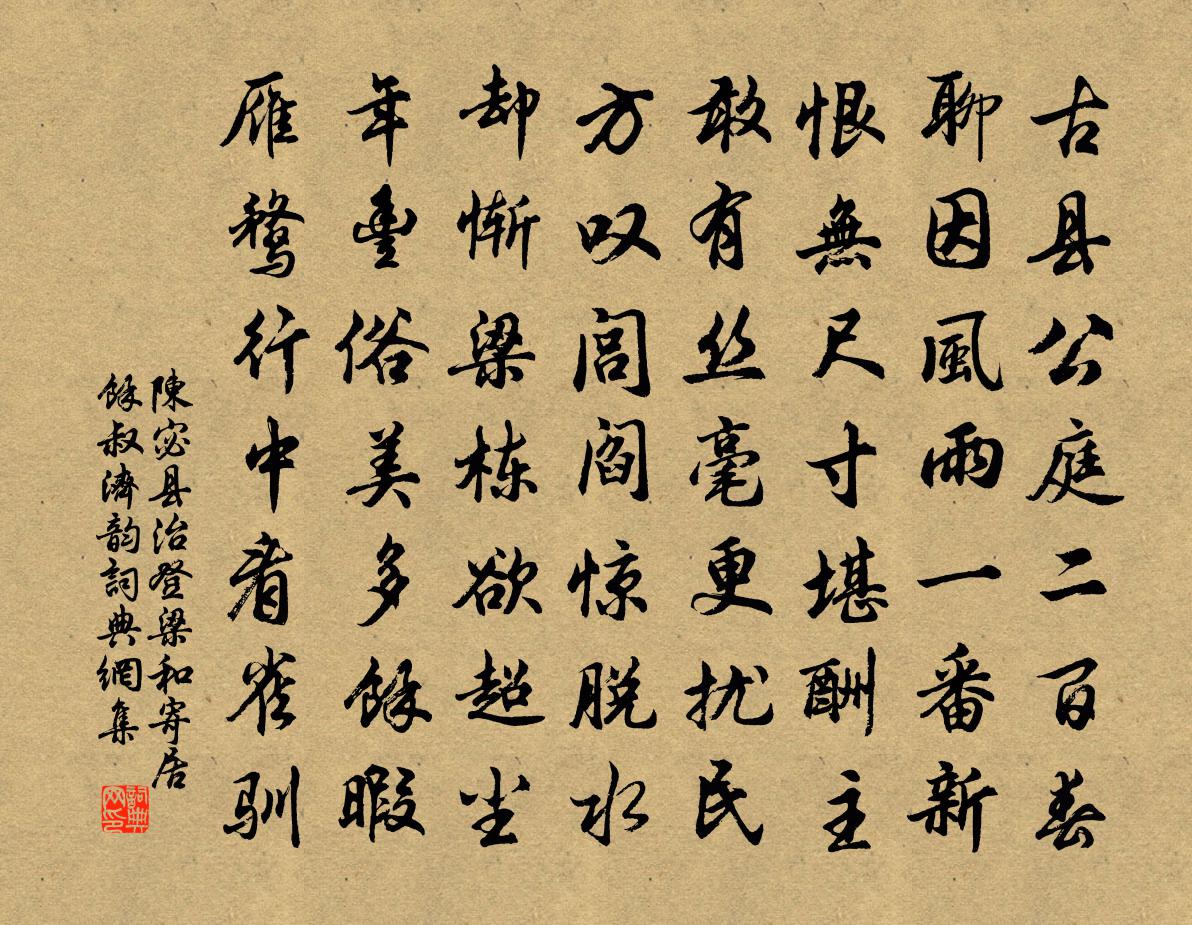 古县公庭二百春
聊因風雨一番新
恨無尺寸堪酬主
敢有丝毫更扰民
方叹闾阎惊脱水
却惭梁栋欲超尘
年豐俗美多餘暇
雁鹜行中看雀驯
陳宓县治登梁和寄居
餘叔濟韵詞典網集
詞典
网印